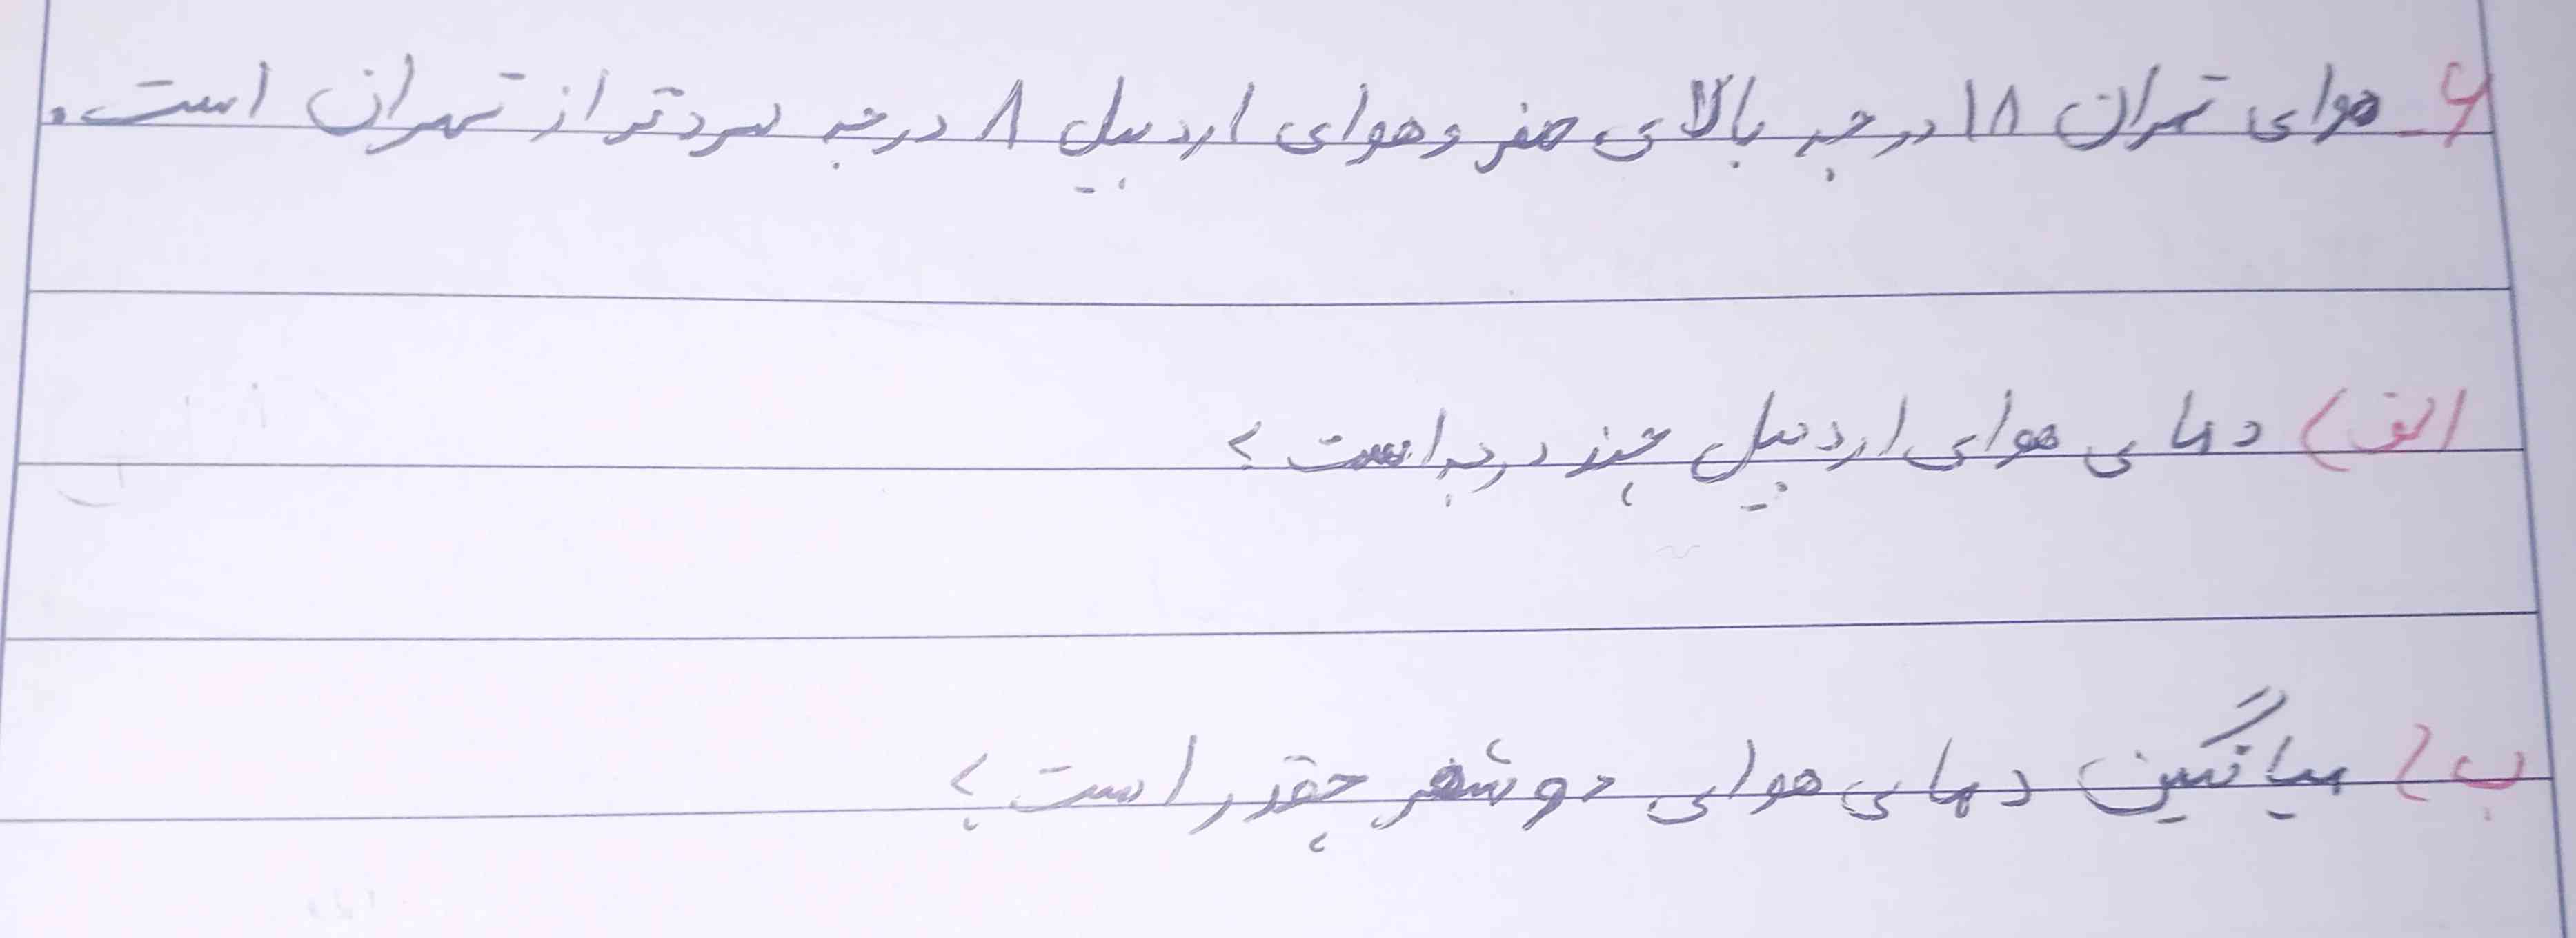 ۶- هوای تهران ۱۸ درجه بالای صفر و هوای اردبیل ۸ درجه سردتر از تهران است.
الف) دمای هوای اردبیل چند درجه است؟
ب) میانگین دمای هوای دو شهر چقدر است؟